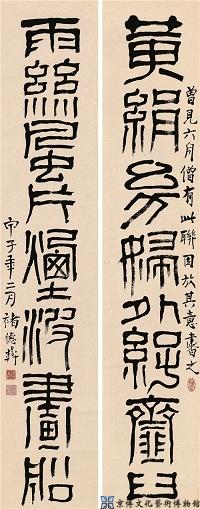 黄絹幼婦外孫齏臼
曾見六舟僧有此聯因放其意書之
雨絲風片煙波畫船
丙子年二月褚德彝
京博文化藝術博物館